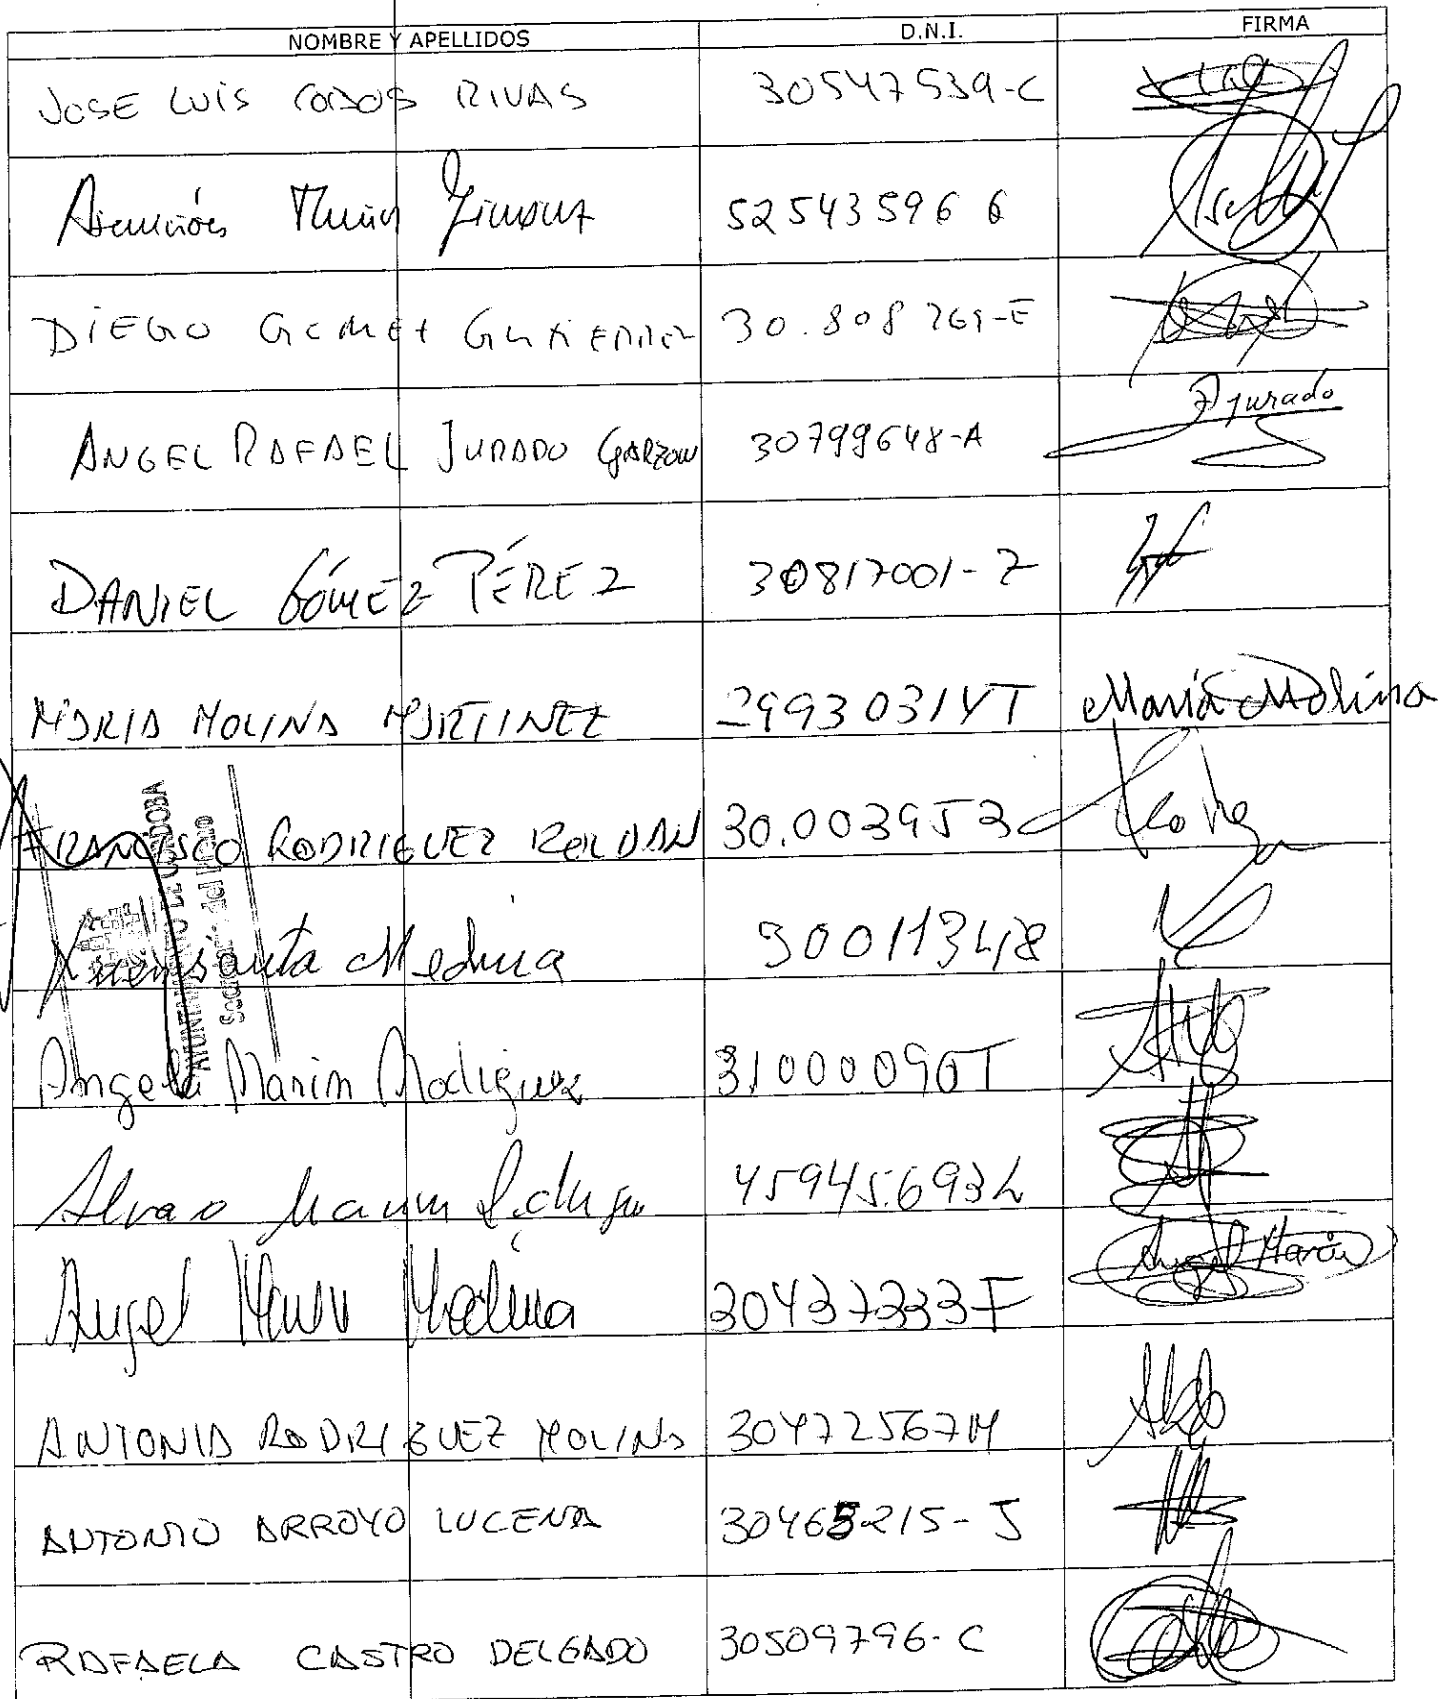 NOMBRE Y APELLIDOS D.N.I. FIRMA
JOSE LUIS RIVAS 30547539-C
Asunción Muñoz 52543596
DIEGO GOMEZ GUTIERREZ 30.808 269-E
ANGEL RAFAEL JURADO GARZON 30799648-A A Jurado
DANIEL GÓMEZ PÉREZ 30817001-Z
MARIA MOLINA MARTINEZ 29930314T María Molina
FRANCISCO RODRIGUEZ ROLDAN 30.003953
AYUNTAMIENTO DE CORDOBA
Fuensanta Medina 30011348
Angela Marin Rodriguez 31000090T
Alvaro Marin 45945693L
Angel Marin Medina 30437333F Angel Marin
ANTONIA RODRIGUEZ MOLINA 30472567M
ANTONIO ARROYO LUCENA 30465215-J
RAFAELA CASTRO DELGADO 30509796-C